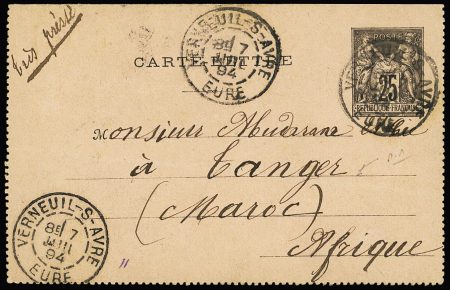 très pressé
VERNEUIL-S-AVRE
8E 7
JUIL
94
EURE
POSTES
25
REPUBLIQUE FRANCAISE
CARTE-LETTRE
Monsieur
à Tanger
(Maroc)
Afrique
VERNEUIL-S-AVRE
8E 7
JUIL
94
EURE